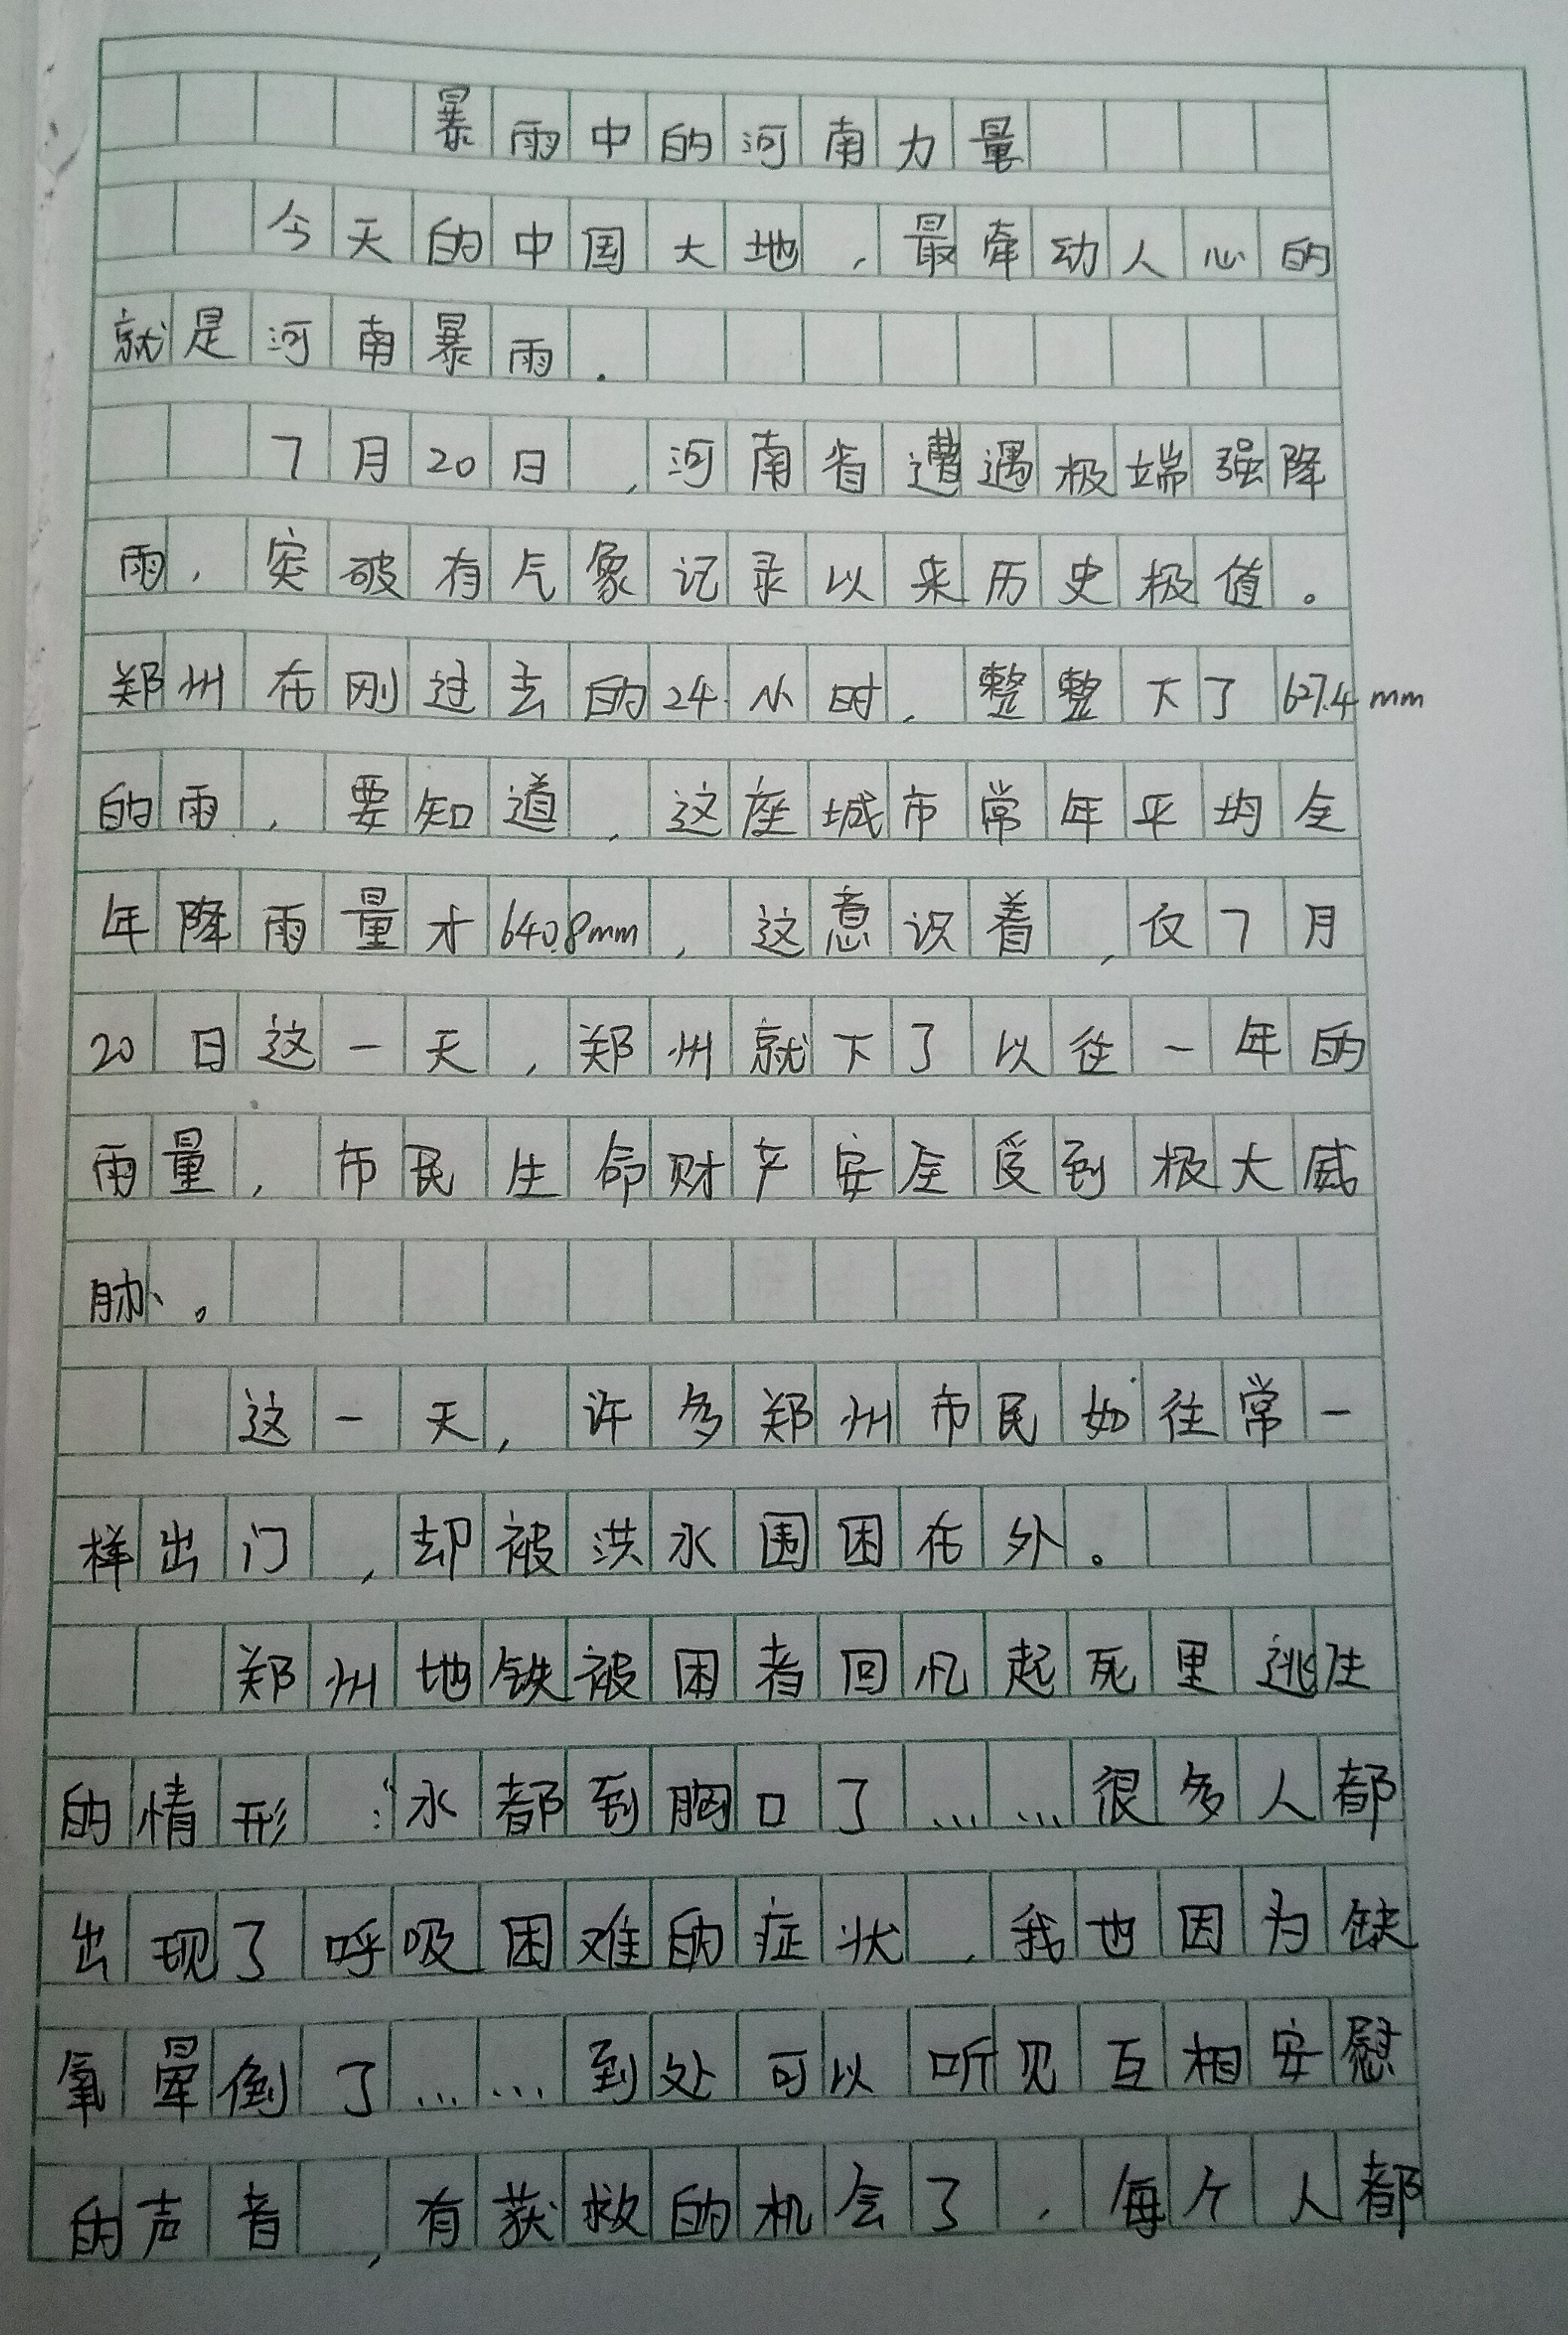 暴雨中的河南力量
今天的中国大地，最牵动人心的
就是河南暴雨.
7月20日，河南省遭遇极端强降
雨，突破有气象记录以来历史极值。
郑州在刚过去的24小时，整整下了627.4mm
的雨，要知道，这座城市常年平均全
年降雨量才640.8mm，这意识着，仅7月
20日这一天，郑州就下了以往一年的
雨量，市民生命财产安全受到极大威
胁。
这一天，许多郑州市民如往常一
样出门，却被洪水围困在外。
郑州地铁被困者回忆起死里逃生
的情形：“水都到胸口了……很多人都
出现了呼吸困难的症状，我也因为缺
氧晕倒了……到处可以听见互相安慰
的声音，有获救的机会了，每个人都